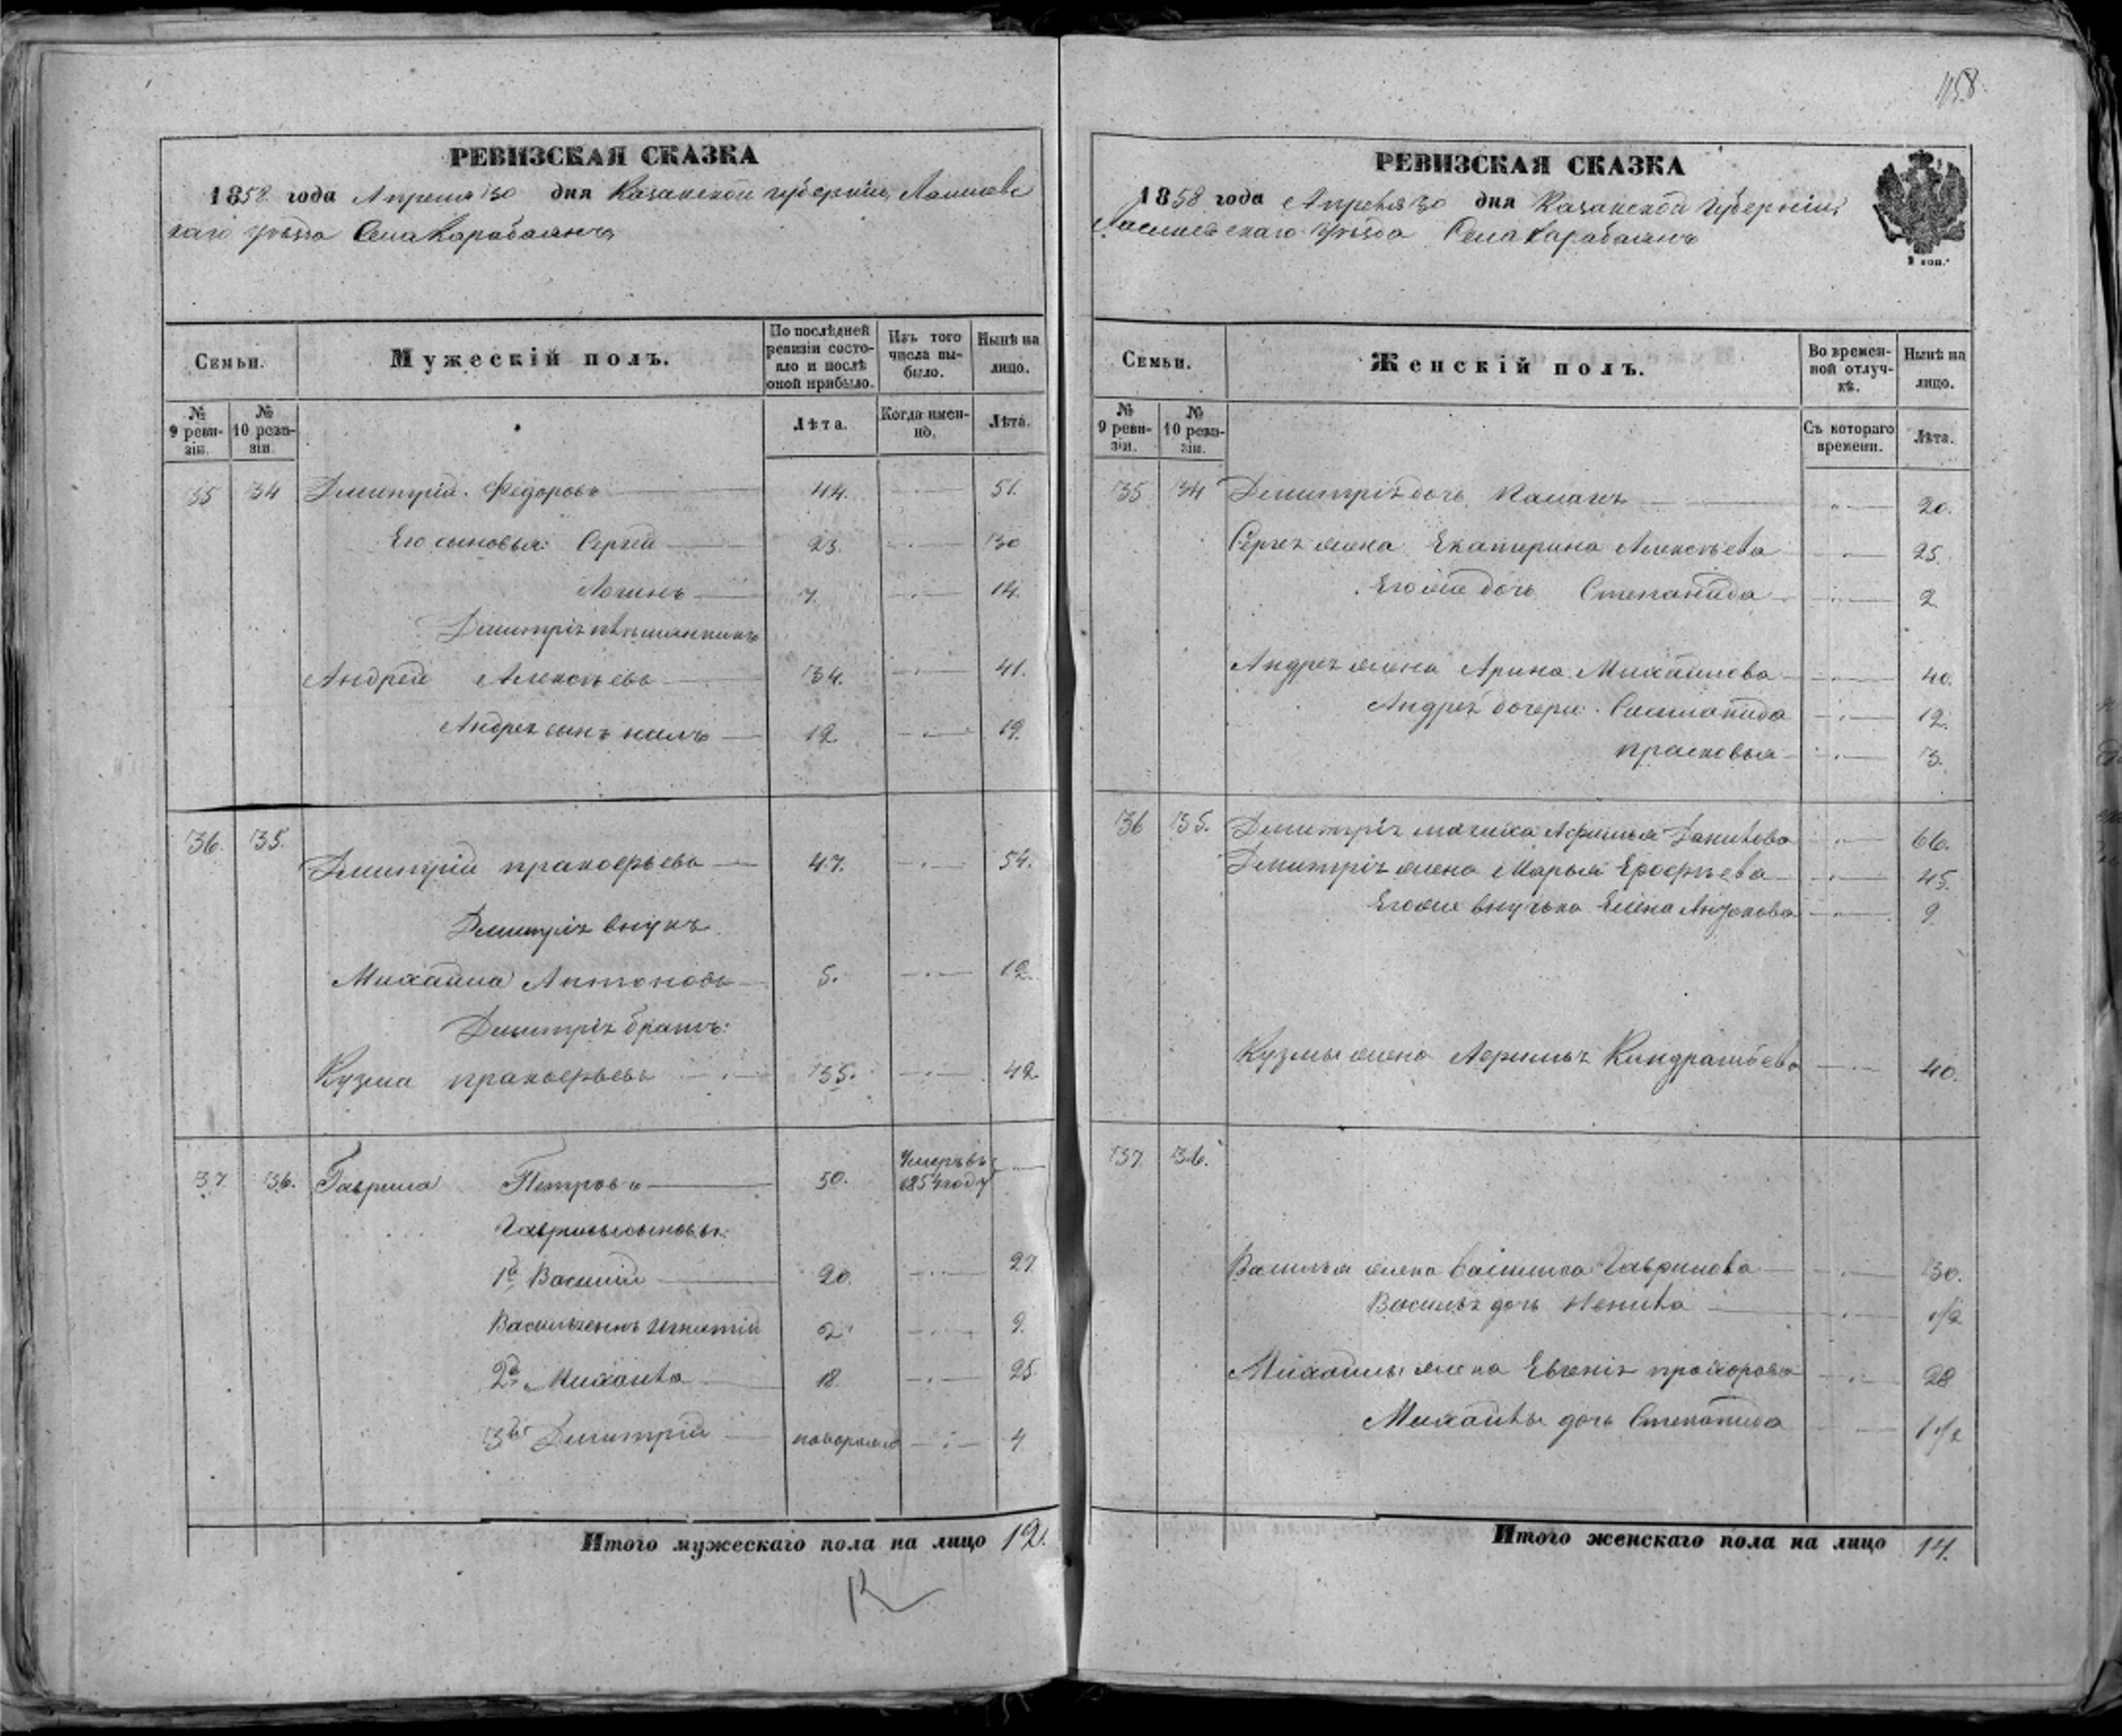 158.
РЕВИЗСКАЯ СКАЗКА
1858 года Апреля 30 дня Казанской губерніи, Лаишевс
каго уѣзда Села Карабаянъ
Семьи.
Мужескій полъ.
По послѣдней ревизіи состояло и послѣ оной прибыло.
Изъ того числа выбыло.
Нынѣ на лицо.
№ 9 ревизіи.
№ 10 ревизіи.
Лѣта.
Когда именно.
Лѣта.
35 34 Дмитрій Федоровъ 44. 51.
Его сыновья: Сергей 23. 30
Логинъ 7. 14.
Дмитрія племянникъ
Андрей Алексѣевъ 34. 41.
Андрея сынъ 12 19.
36. 35. Дмитрій Пракофьевъ 47. 54.
Дмитрія внукъ
Михайла Антоновъ 5. 12.
Дмитрія братъ:
Кузма Пракофьевъ 35. 42
37 36. Гаврила Петровъ 50. Умеръ въ 1854 году
Гаврилы сыновья:
1й Василій 20. 27
Васильясынъ Игнатій 2 9.
2й Михайла 18. 25.
3й Дмитрій новорожд 4
Итого мужескаго пола на лицо 12.
РЕВИЗСКАЯ СКАЗКА
1858 года Апреля 30 дня Казанской губерніи
Лаишевскаго уѣзда Села Карабаянъ
2 коп.
Семьи.
Женскій полъ.
Во временной отлучкѣ.
Нынѣ на лицо.
№ 9 ревизіи.
№ 10 ревизіи.
Съ котораго времени.
Лѣта.
35. 34 Дмитрія дочь 20.
Сергея жена Екатерина Алексѣева 25.
Его же дочь Степанида 2
Андрея жена Арина Михайлова 40.
Андрея дочери: 12.
Прасковья 3.
36 35. Дмитрія мачиха Афимья Данилова 66.
Дмитрія жена Марья Ерофѣева 45.
Его же внучька Елена Антонова 9.
Кузмы жена Афимья Киндратьева 40.
37 36.
Василья жена Василиса Гаврилова 30.
Василья дочь 1/2
Михайлы жена Евгенія Прохорова 28
Михайлы дочь Степанида 1 1/2
Итого женскаго пола на лицо 14.